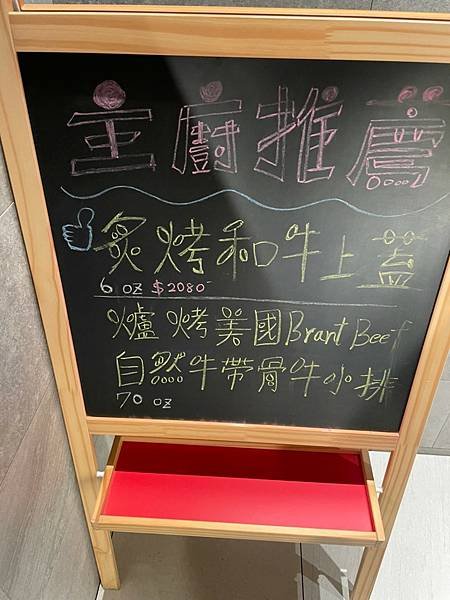 主廚推薦
炙烤和牛上蓋
6 oz $2080
爐烤美國Brant Beef
自然牛帶骨牛小排
70 oz